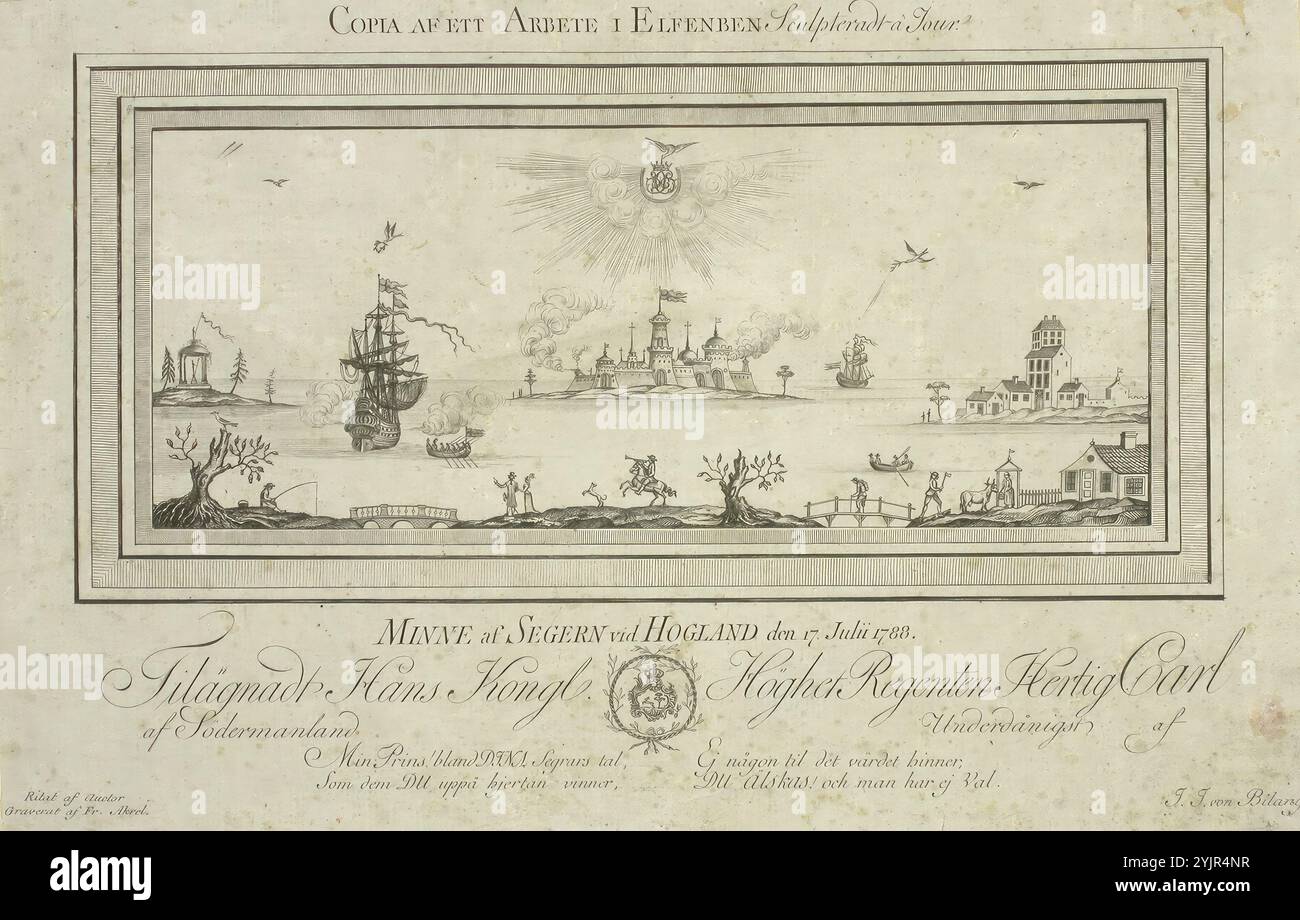 COPIA AF ETT ARBETE I ELFENBEN Sculpteradt à Jour.
MINNE af SEGERN vid HOGLAND den 17. Julii 1788.
Tilägnadt Hans Kongl. Höghet Regenten Hertig Carl
af Södermanland Underdånigst af
Min Prins! bland DINA Segrars tal, Ej någon til det värdet hinner,
Som dem DU uppå hjertan vinner, DU Älskas! och man har ej Val.
Ritat af Auctor
Graverat af Fr. Akrel.
J. J. von Bilang
alamy
alamy
alamy
a
a
a
alamy
Image ID: 2YJR4NR
www.alamy.com